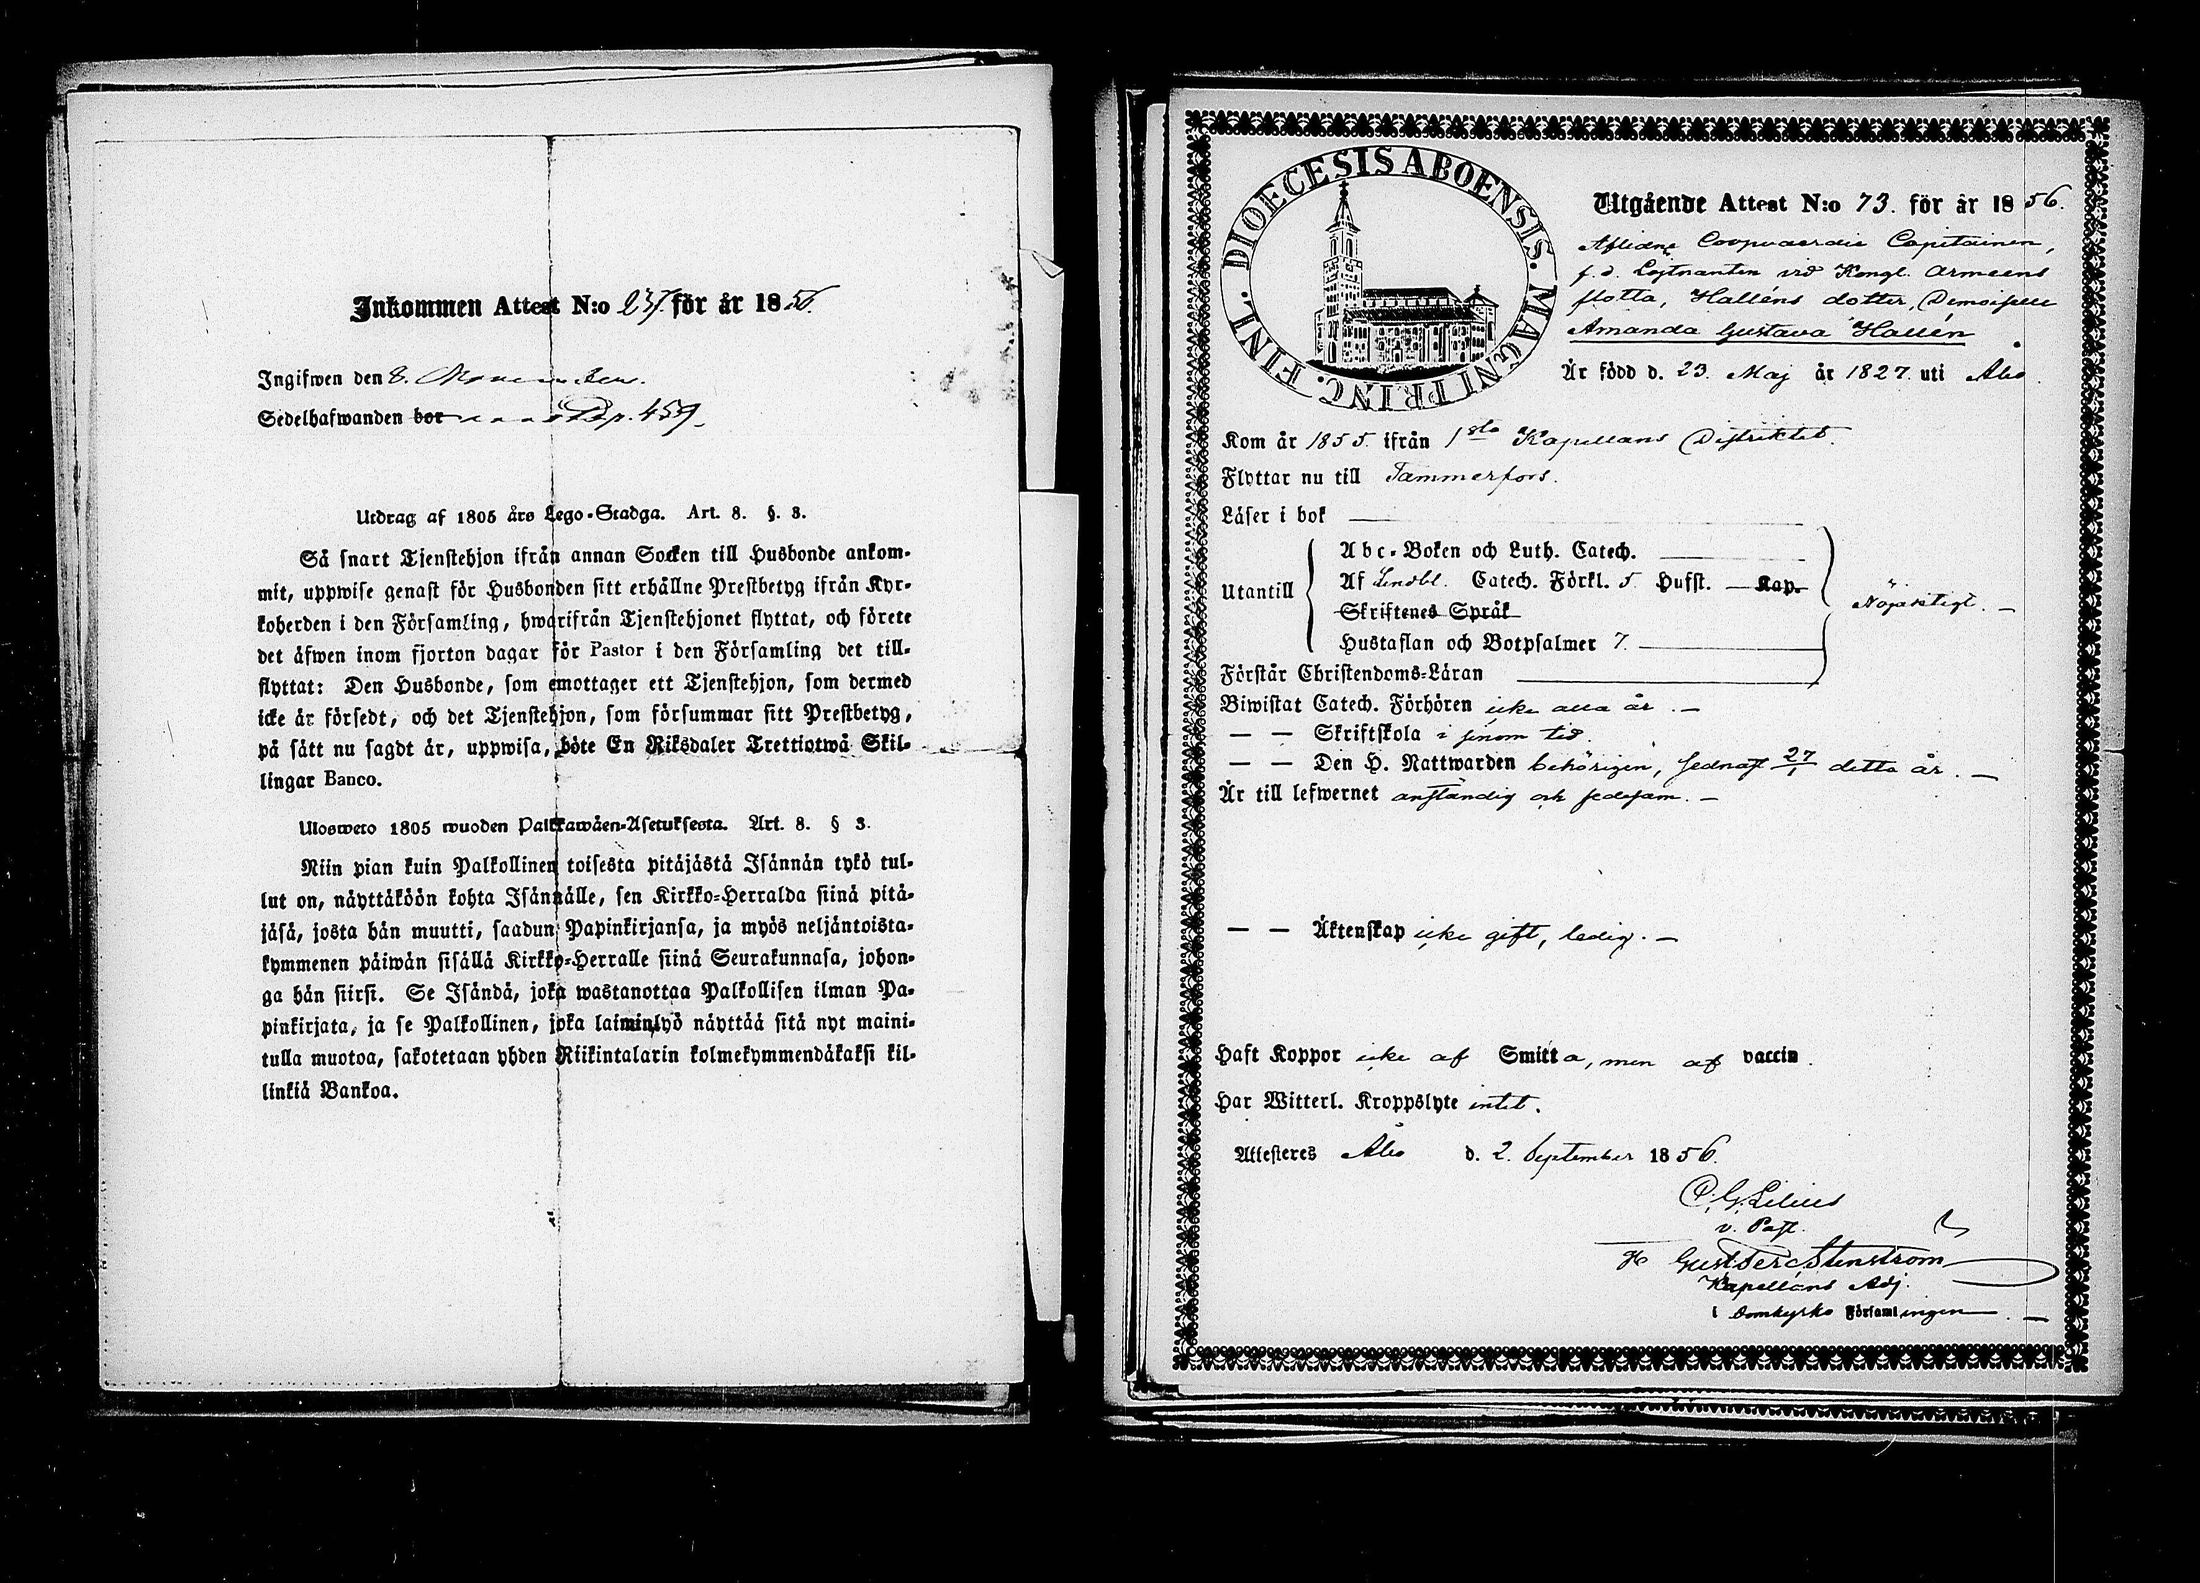 Inkommen Attest N:o 237. för år 1856.
Ingifwen den 8. November.
Sedelhafwanden bor p. 459.
Utdrag af 1805 års Lego-Stadga. Art. 8. §. 3.
Så snart Tjenstehjon ifrån annan Socken till Husbonde ankom-
mit, uppwise genast för Husbonden sitt erhållne Prestbetyg ifrån Kyr-
koherden i den Församling, hwarifrån Tjenstehjonet flyttat, och förete
det äfwen inom fjorton dagar för Pastor i den Församling det till-
flyttat: Den Husbonde, som emottager ett Tjenstehjon, som dermed
icke är försedt, och det Tjenstehjon, som försummar sitt Prestbetyg,
på sätt nu sagdt är, uppwisa, böte En Riksdaler Trettiotwå Skil-
lingar Banco.
Ulosweto 1805 wuoden Palkkawäen-Asetuksesta. Art. 8. § 3.
Niin pian kuin Palkollinen toisesta pitäjästä Isännän tykö tul-
lut on, näyttäköön kohta Isännälle, sen Kirkko-Herralda siinä pitä-
jäsä, josta hän muutti, saadun Papinkirjansa, ja myös neljäntoista-
kymmenen päiwän sisällä Kirkko-Herralle siinä Seurakunnasa, johon-
ga hän siirsi. Se Isändä, joka wastanottaa Palkollisen ilman Pa-
pinkirjata, ja se Palkollinen, joka laiminlyö näyttää sitä nyt maini-
tulla muotoa, sakotetaan yhden Riikintalarin kolmekymmendäkaksi kil-
linkiä Bankoa.
DIOECESIS ABOENSIS. MAGNI PRINC. FINL.
Utgående Attest N:o 73. för år 1856.
Aflidne Coopvaerdie Capitainen,
f.d. Löjtnanten vid Kongl. Armeens
flotta, Halléns dotter, Demoiselle
Amanda Gustava Hallén
Är född d. 23. Maj år 1827. uti Åbo.
Kom år 1855. ifrån 1sta Kapellans Distriktet.
Flyttar nu till Tammerfors.
Läser i bok
Abc-Boken och Luth. Catech.
Utantill Af Lindbl. Catech. Förkl. 5 Hufst. — Kap. Nöjaktigt. —
Skriftenes Språk
Hustaflan och Botpsalmer 7.
Förstår Christendoms-Läran
Biwistat Catech. Förhören icke alla år. —
— — Skriftskola i sinom tid.
— — Den H. Nattwarden behörigen, sednast 27/1 detta år. —
Är till lefwernet anständig och sedesam. —
— — Äktenskap icke gift, ledig. —
Haft Koppor icke af Smitta, men af vaccin.
Har Witterl. Kroppslyte intet.
Attesteres Åbo d. 2. September 1856.
C. G. Lilius
v. Past.
Stenström
Kapellans Adj.
i Domkyrko Församlingen. —